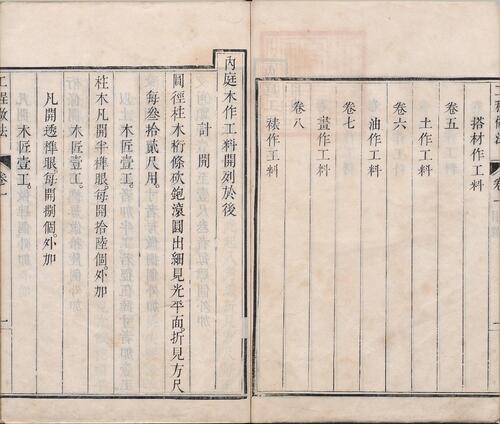 工程做法
卷一
搭材作工料
卷五
土作工料
卷六
油作工料
卷七
畫作工料
卷八
裱作工料
內庭木作工料開列於後
計開
圓徑柱木桁條砍鉋滾圓出細見光平面折見方尺
每叁拾貳尺用
木匠壹工。
柱木凡開半榫眼。每開拾陸個。外加
木匠壹工。
凡開透榫眼。每開捌個。外加
木匠壹工。
工程做法
卷一
一